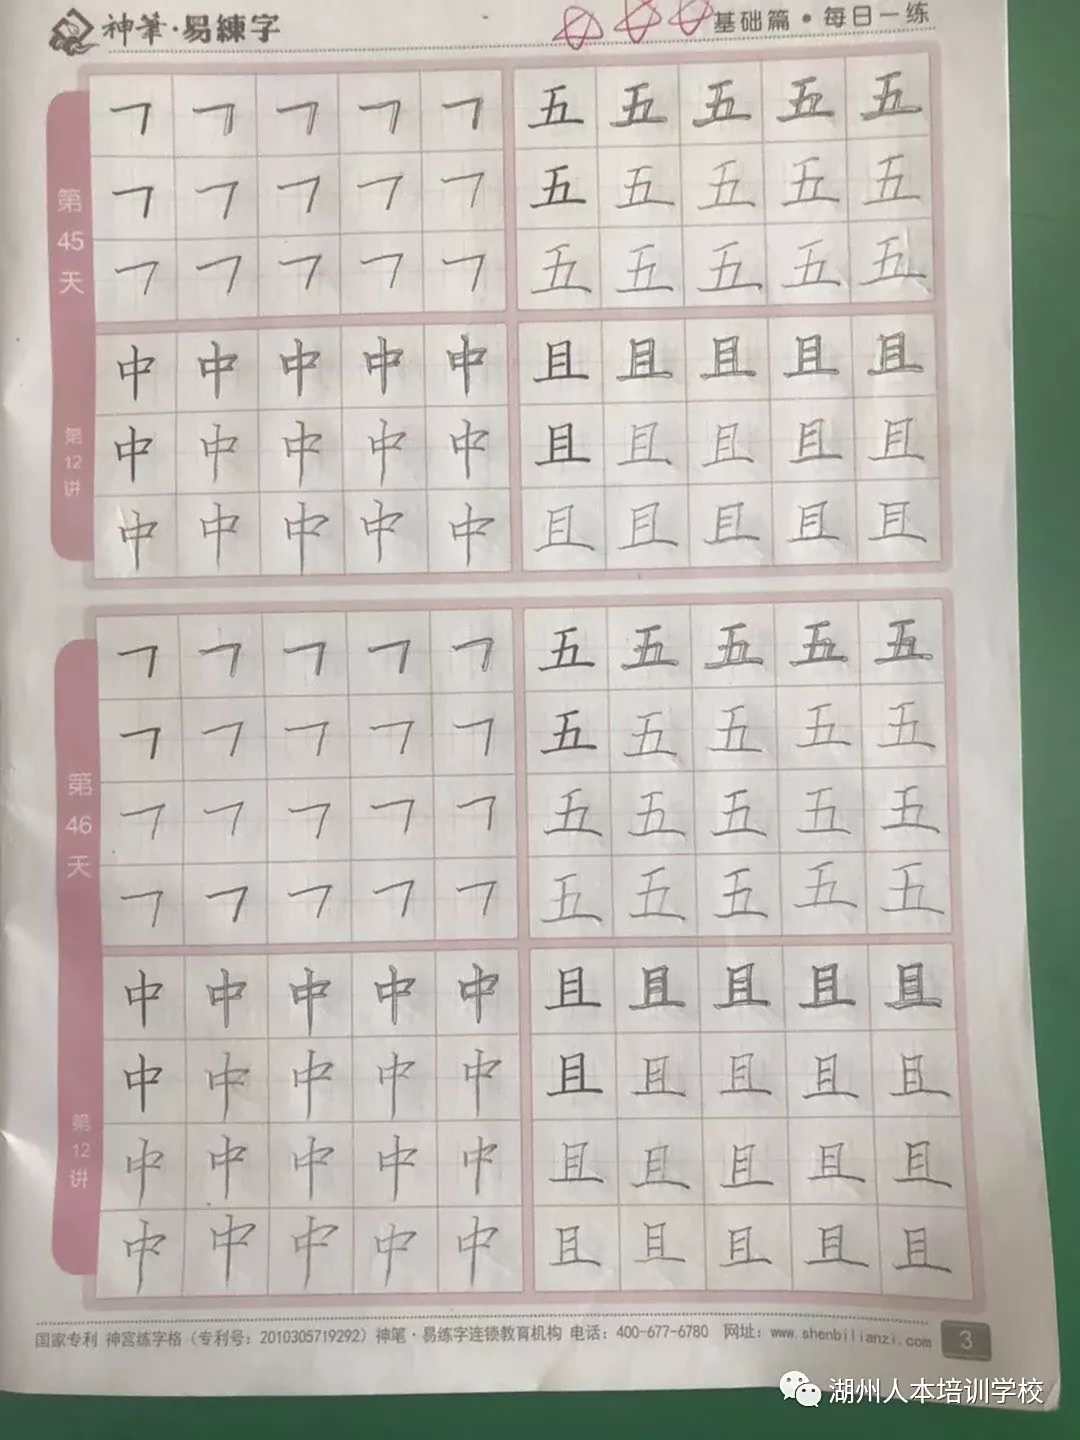 神筆·易練字 基础篇·每日一练
第45天
㇕ ㇕ ㇕ ㇕ ㇕ 五 五 五 五 五
㇕ ㇕ ㇕ ㇕ ㇕ 五 五 五 五 五
㇕ ㇕ ㇕ ㇕ ㇕ 五 五 五 五 五
第12讲
中 中 中 中 中 且 且 且 且 且
中 中 中 中 中 且 且 且 且 且
中 中 中 中 中 且 且 且 且 且
第46天
㇕ ㇕ ㇕ ㇕ ㇕ 五 五 五 五 五
㇕ ㇕ ㇕ ㇕ ㇕ 五 五 五 五 五
㇕ ㇕ ㇕ ㇕ ㇕ 五 五 五 五 五
㇕ ㇕ ㇕ ㇕ ㇕ 五 五 五 五 五
第12讲
中 中 中 中 中 且 且 且 且 且
中 中 中 中 中 且 且 且 且 且
中 中 中 中 中 且 且 且 且 且
中 中 中 中 中 且 且 且 且 且
国家专利 神宫练字格（专利号：2010305719292）神笔·易练字连锁教育机构 电话：400-677-6780 网址：www.shenbilianzi.com 3
湖州人本培训学校